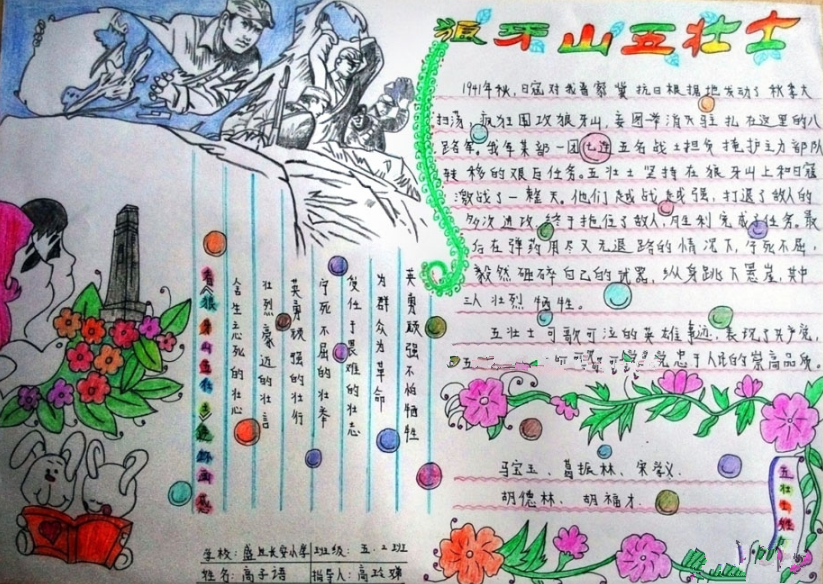 狼牙山五壮士
1941年秋,日寇对我晋察冀抗日根据地发动了秋季大
扫荡,疯狂围攻狼牙山,妄图带消灭驻扎在这里的八
路军。我军某部一团七连五名战士担负掩护主力部队
转移的艰巨任务。五壮士坚持在狼牙山上和日寇
激战了一整天,他们越战越强,打退了敌人的
多次进攻,终于拖住了敌人,胜利完成了任务。最
后在弹药用尽又无退路的情况下,宁死不屈,
毅然砸碎自己的武器,纵身跳下悬崖,其中
三人壮烈牺牲。
五壮士可歌可泣的英雄事迹,表现了共产党,
五 党忠于人民的崇高品质。
英勇顽强不怕牺牲
为群众为革命
受任于畏难的壮志
宁死不屈的壮举
英勇顽强的壮行
壮烈豪迈的壮言
舍生忘死的壮心
看《狼牙山五壮士》
马宝玉、葛振林、宋学义、
胡德林、胡福才.
五壮士姓
学校:盛丘长安小学 班级:五.2班
姓名:高子语 指导人:高